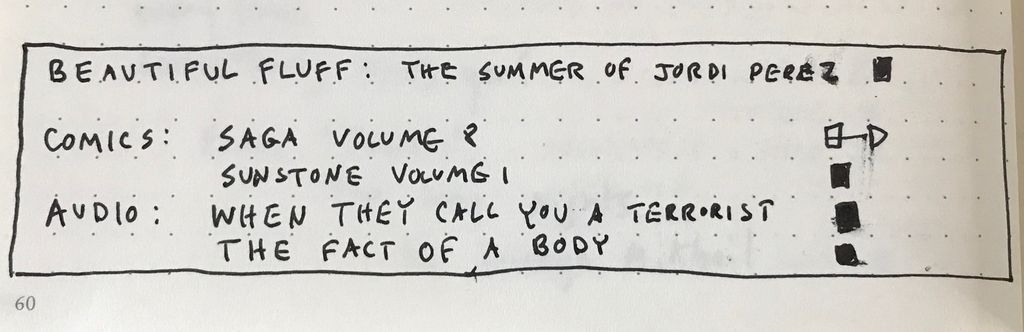 BEAUTIFUL FLUFF: THE SUMMER OF JORDI PEREZ
COMICS: SAGA VOLUME 8
SUNSTONE VOLUME 1
AUDIO: WHEN THEY CALL YOU A TERRORIST
THE FACT OF A BODY
60